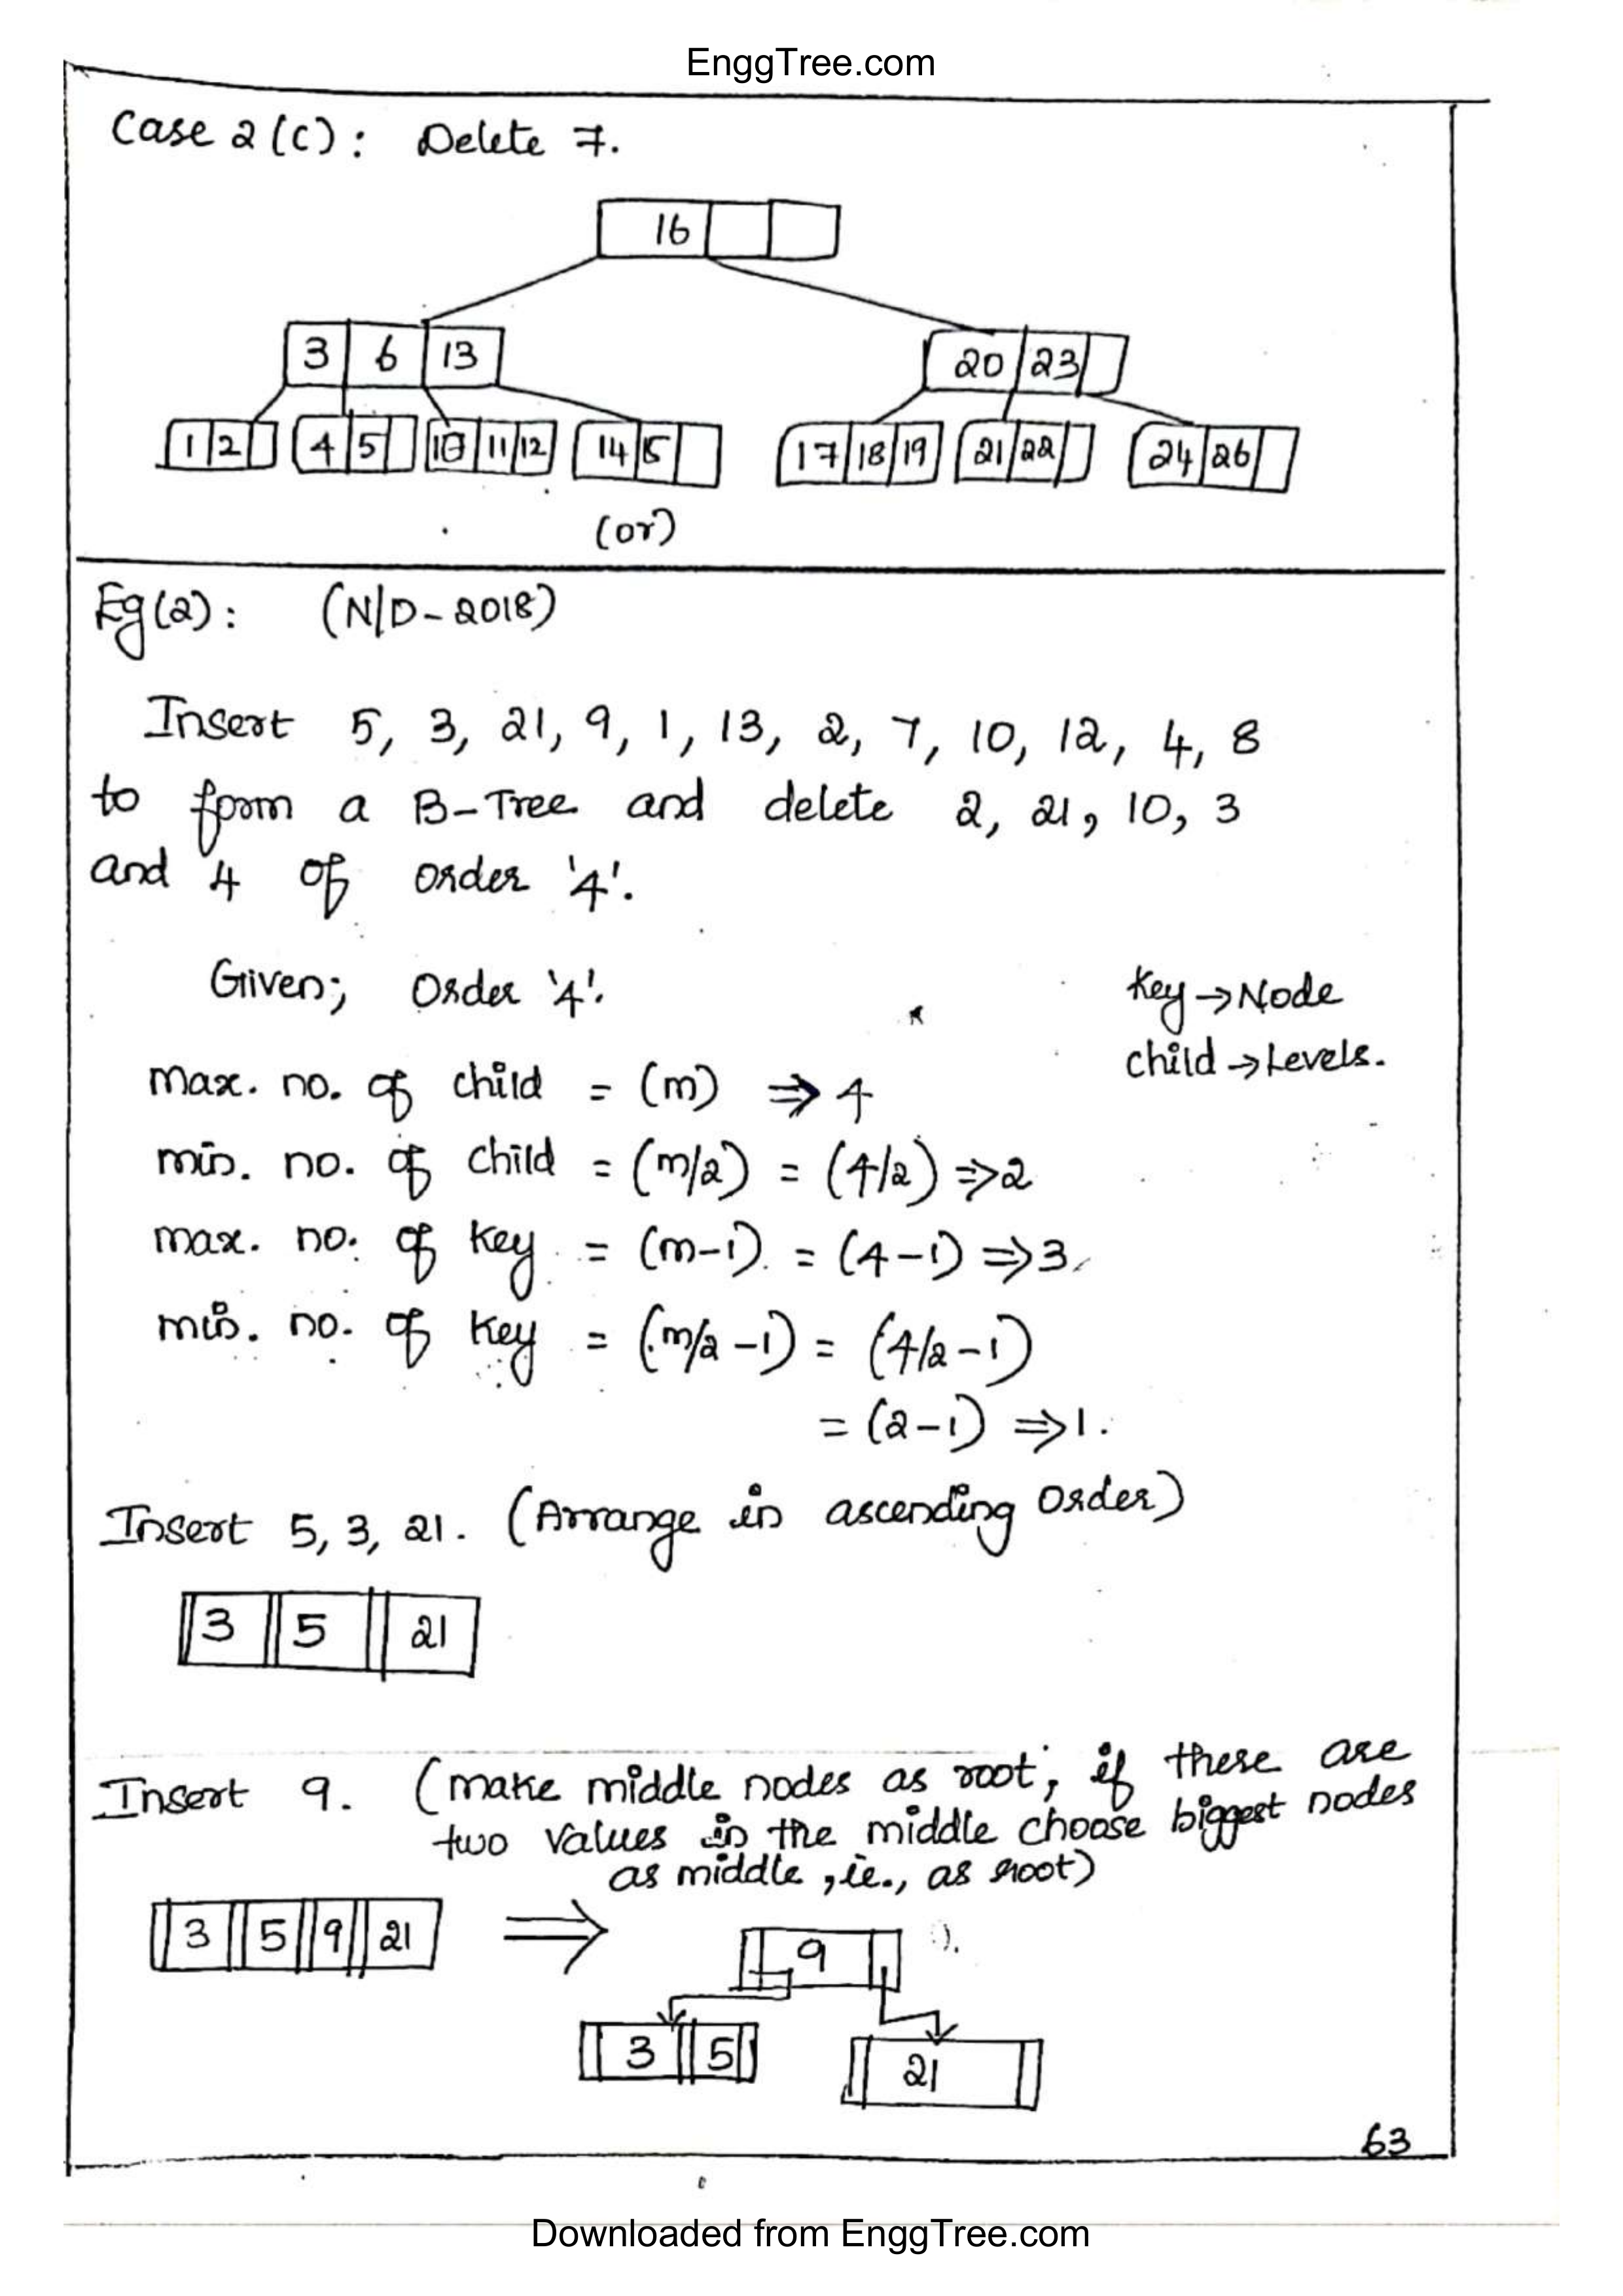 EnggTree.com
Case 2(c): Delete 7.
16
3 6 13
20 23
1 2 4 5 10 11 12 14 15 17 18 19 21 22 24 26
(or)
Eg(2): (N/D-2018)
Insert 5, 3, 21, 9, 1, 13, 2, 7, 10, 12, 4, 8
to form a B-Tree and delete 2, 21, 10, 3
and 4 of order '4'.
Given; Order '4'.
Key → Node
child → Levels.
max. no. of child = (m) ⇒ 4
min. no. of child = (m/2) = (4/2) ⇒ 2
max. no. of key = (m-1) = (4-1) ⇒ 3
min. no. of key = (m/2 -1) = (4/2 -1)
= (2-1) ⇒ 1.
Insert 5, 3, 21. (Arrange in ascending order)
3 5 21
Insert 9. (make middle nodes as root; if these are
two values in the middle choose biggest nodes
as middle, ie., as root)
3 5 9 21 ⇒ 9
3 5 21
63
Downloaded from EnggTree.com